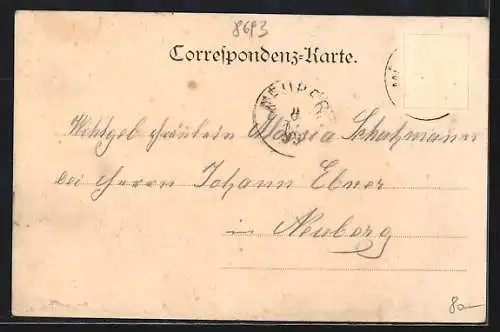 8693
Correspondenz-Karte.
NEUBERG
8
Wohlgeb Fräulein Aloisia Schatzmann
bei Herrn Johann Ebner
in Neuberg
8a